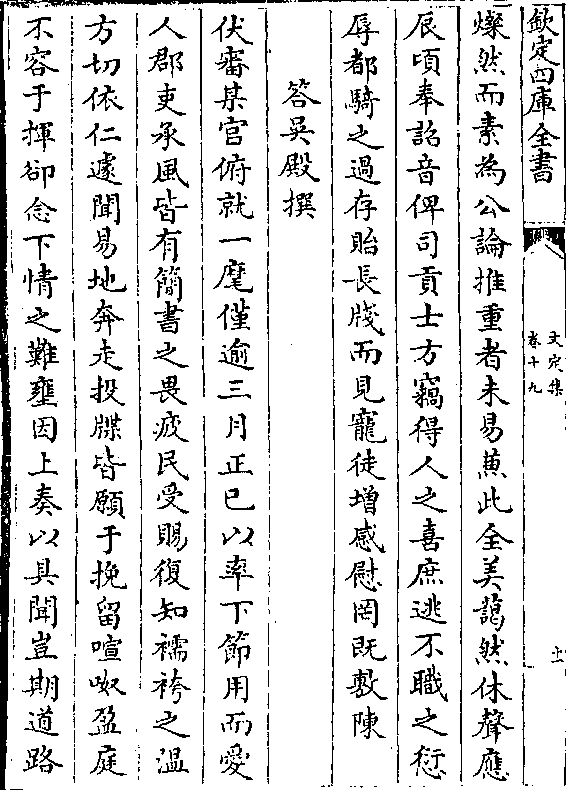 欽定四庫全書
文定集
卷十九
上
燦然而素為公論推重者未易兼此全美藹然休聲應
辰頃奉詔音俾司貢士方竊得人之喜庶逃不職之愆
辱都騎之過存貽長牋而見寵徒增感慰罔既敷陳
答吳殿撰
伏審某官俯就一麾僅逾三月正已以率下節用而愛
人郡吏承風皆有簡書之畏疲民受賜復知襦袴之温
方切依仁遽聞易地奔走投牒皆願于挽留喧呶盈庭
不容于揮卻念下情之難壅因上奏以具聞豈期道路